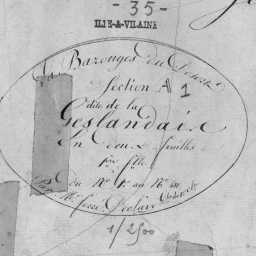 - 35 -
ILLE-&-VILAINE
La Bazouges du Désert
Section A 1
dite de la
Geslandais
En deux feuilles
1ère flle
du No 1er au No
1/2500